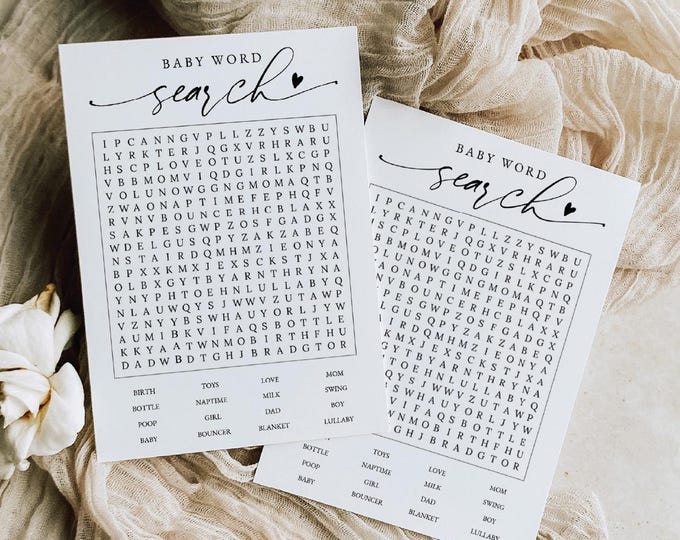 BABY WORD
search
I P C A N N G V P L L Z Z Y S W B U
L Y R K T E R J Q G X V R H R A R U
H S C P L O V E O T U Z S L X C G P
V B B M O M V I Q D G I R L K P N Q
V O L U N O W G N G M O M A Q T B
Z W A O N A P T I M E F E P H Q F V
R V N V B O U N C E R H C B L A X X
S A K P E S G W P Z O S F G A D G X
W D E L G U S Q P Y Z A K Z A B E Q
N S T A I R D Q M H M Z I E O N Y A
B P X X K M X J E X S C K S T J X A
O L Y N E X G T B Y A R N T H R Y N A
Y N Y P H T O E H N L U L L A B Y Q
N L A U W Q Y S J W W V Z U T A W P
V Z N Y Y B S W H A U Y O R L J Y W
A U M I B K V I F A Q S B O T T L E
K K Y A A T W N M O B I R T H F H U
D A D W B D T G H J B R A D G T O R
BIRTH TOYS LOVE MOM
BOTTLE NAPTIME MILK SWING
POOP GIRL DAD BOY
BABY BOUNCER BLANKET LULLABY
BABY WORD
search
I P C A N N G V P L L Z Z Y S W B U
Y R K T E R J Q G X V R H R A R U
S C P L O V E O T U Z S L X C G P
B B M O M V I Q D G I R L K P N Q
O L U N O W G N G M O M A Q T B
A O N A P T I M E F E P H Q F V
V B O U N C E R H C B L A X X
P E S G W P Z O S F G A D G X
L G U S Q P Y Z A K Z A B E Q
I R D Q M H M Z I E O N Y A
K M X J E X S C K S T J X A
G T B Y A R N T H R Y N A
T O E H N L U L L A B Y Q
Q Y S J W W V Z U T A W P
B S W H A U Y O R L J Y W
V I F A Q S B O T T L E
W N M O B I R T H F H U
G H J B R A D G T O R
BOTTLE TOYS LOVE MOM
POOP NAPTIME MILK SWING
BABY GIRL DAD BOY
BOUNCER BLANKET LULLABY